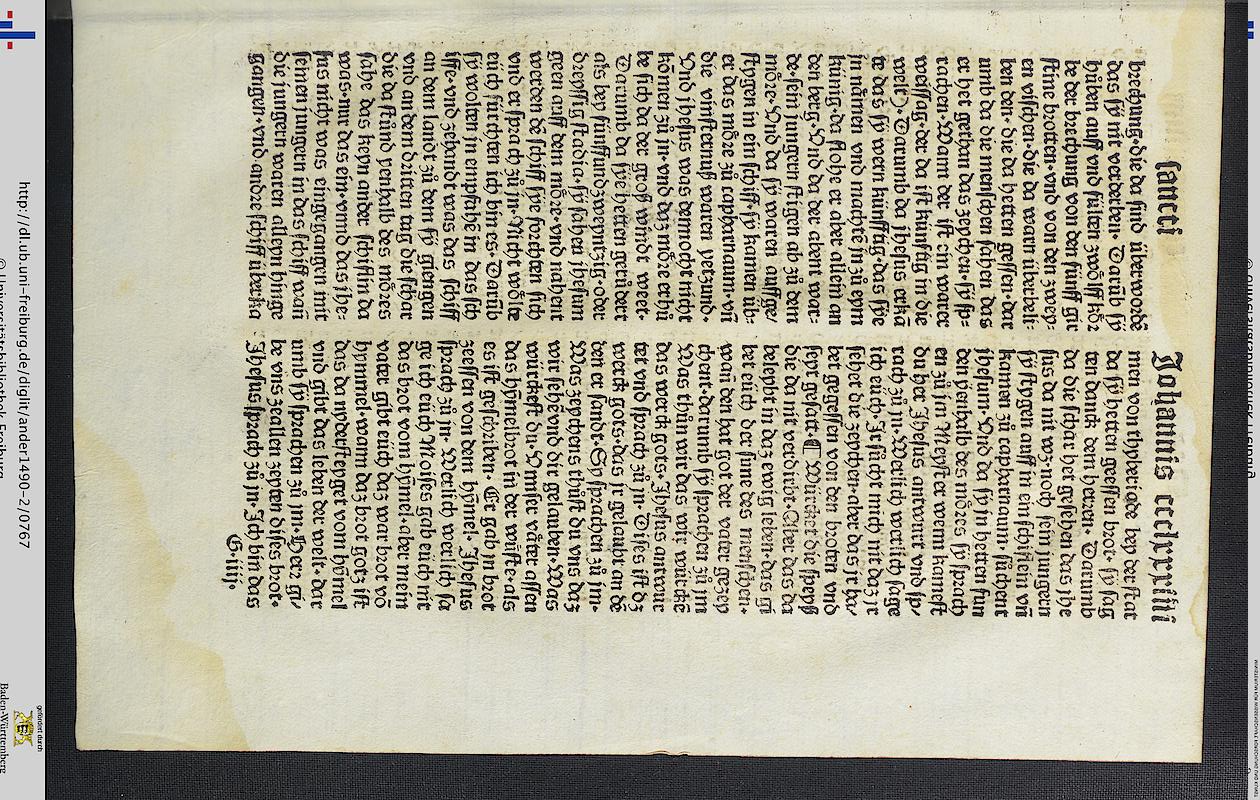 sancti
Johannis ccclxxxiiii
brechung·die da sind überworde
das sy nit verderben· Darūb sy
hůben auff vnd fülten zwölff kör
be der brechung von den fünff gir
stine brotten·vnd von den zwey-
en vischen·die da warn überbeli-
ben den·die da hetten gessen·dar
umb da die menschen sahen das
er het gethan das zeychen·sy sp-
rachen·Wann der ist ein warer
weissag·der da ist künftig in die
welt· Darumb da jhesus erkā
te das sy wern künfftig das sye
jn nämen vnd machtē jn zů eym
künig·da flohe er aber allein an
den berg·Vnd da der abent war-
de·sein jungern stigen ab zů dem
möre·Vnd da sy waren auffge/
stygen in ein schiff·sy kamen üb-
er das möre zů capharnaum·vñ
die vinsternuß waren yetzund·
Vnd jhesus was dennocht nicht
kōmen zů jn·vnd daz möre erhů
be sich da der groß windt weet·
Darumb da sye hetten gerüdert
als bey fünffundzweyntzig·oder
dreyssig stadia·sy sahen jhesum
geen auff dem möre·vnd nahent
werden dē schiff sye forchten sich
vnd er sprach zů jn·Nicht wölte
eüch fürchten ich bin es·Darūb
sy wolten jn empfahē in das sch
iffe·vnd zehandt was das schiff
an dem landt zů dem sy gengen
vnd an dem dritten tag die schar
die da stůnd yenhalb des möres
sahe das keyn ander schiflin da
was·nur das ein·vnnd das ihe-
sus nicht was eingegangen mit
seinen jungern in das schiff wañ
die jungern waren alleyn hinge
gangen·vnd andre schiff überka
men von thyberiade bey der stat
da sy hetten gessen brot·sy sag
ten danck dem herren· Darumb
da die schar het gesehen das jhe
sus da nit wz·noch sein jungern
sy stygen auff in ein schiflein vñ
kamen zů capharnaum·sůchent
jhesum·Vnd da sy jn hetten fun
den yenhalb des möres sy sprach
en zů jm Meyster wenn kamest
du her Jhesus antwurt vnd sp/
rach zů jn·Werlich werlich sage
ich eüch·Ir sůcht mich nit daz jr
sehet die zeychen·aber das jr ha/
bet gegessen von den broten vnd
seyt gesatt·¶Würcket die speyß
die da nit verdirbt·Aber dass da
beleypt in daz ewig leben·das gi
bet eüch der sune des menschen·
wañ den hat got der vater gezey
chent·darumb sy sprachen zů jm
Was thůn wir das wir würcke
das werck gots·Jhesus antwur
tet vnd sprach zů jn·Dises ist dz
werck gots·das jr gelaubt an dē
den er sandt·Sy sprachen zů jm·
Was zeychens thůst du vns daz
wir sehē vnd dir gelauben·Was
würckest du·Vnser väter assen
das hymelbrot in der wüste·als
es ist geschriben·Er gab jn brot
zeessen von dem hymel·Jhesus
sprach zů jn·Werlich werlich sa
ge ich eüch Moises gab eüch nit
das brot vom hymel·aber mein
vater gibt eüch daz war brot võ
hymmel·wann daz brot gotz ist
das da nydersteyget vom hymel
vnd gibt das leben der welt·dar
umb sy sprachen zů jm·Herr gi/
be vns zeallen zyten dises brot·
Jhesus sprach zů jn·Ich bin das
G·iiij·
http://dl.ub.uni-freiburg.de/diglit/ander1490-2/0767
© Universitätsbibliothek Freiburg
gefördert durch
Baden-Württemberg